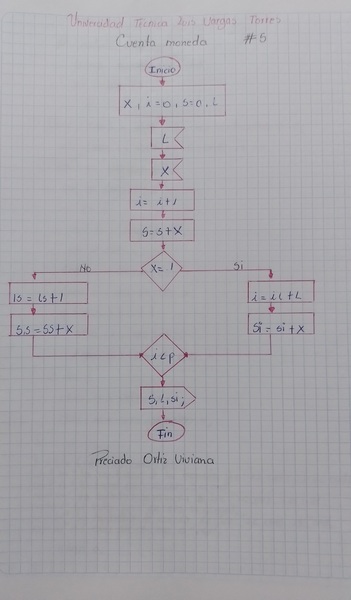 Universidad Técnica Luis Vargas Torres
Cuenta moneda #5
Inicio
X, i=0, s=0, L
L
X
i= i+1
S=S+X
X= 1
No
Si
is = is+1
i = ii+L
S.S = SS+X
Si = si+X
i < p
S, L, si;
Fin
Preciado Ortiz Viviana